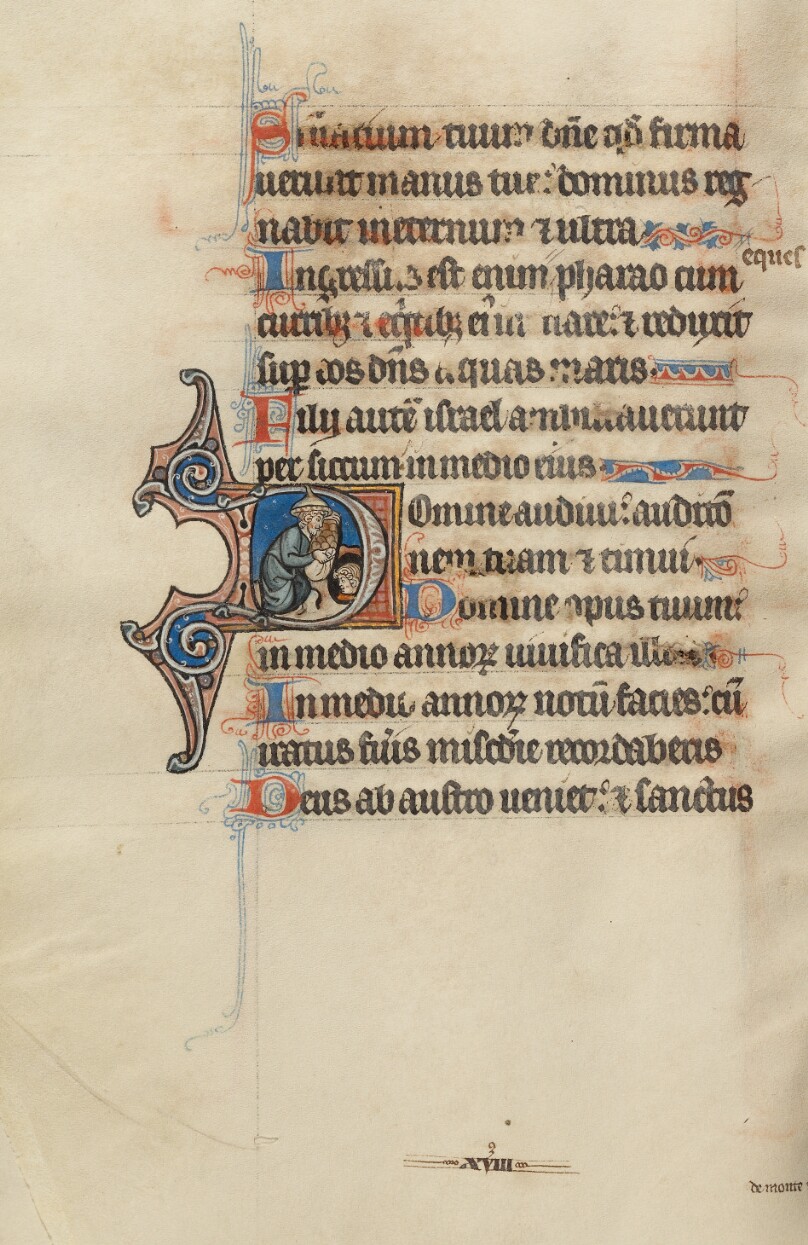 S͂ctuarium tuum dñe qd̃ firma
uerunt manus tue: dominus reg
nabit ineternum ⁊ ultra
Ingressus est enim pharao cum
eques
curribꝫ ⁊ eq̇tibꝫ ei᷒ in mare: ⁊ reduxit
suꝑ eos dñs aquas maris
Filij autē israel ambulauerunt
per siccum in medio eius
Domine audiui: auditō
nem tuam ⁊ timui
Domine opus tuum:
in medio annoꝝ uiuifica illud
In medio annoꝝ notū facies: cū
iratus fũis misc̃die recordaberis
Deus ab austro ueniet: ⁊ sanctus
xviii᷒
de monte